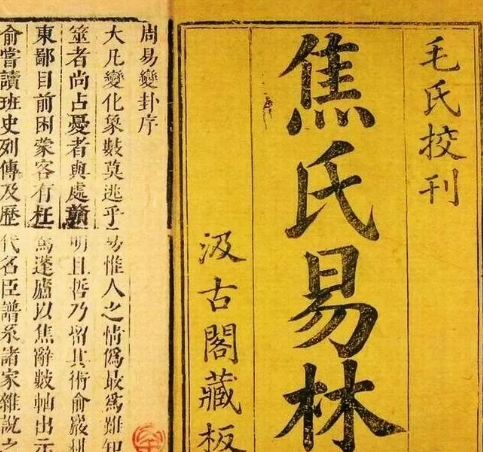 毛氏挍刊
焦氏易林
汲古閣藏板
周易變卦序
大凡變化象數莫逃乎易惟人之情僞最爲難知
筮者尚占憂者與處贛明且哲乃留其術俞嚴耕
東鄙目前困蒙客有枉駕蓬廬以焦辭數軸出示
俞嘗讀班史列傳及歷代名臣譜系諸家雜說之